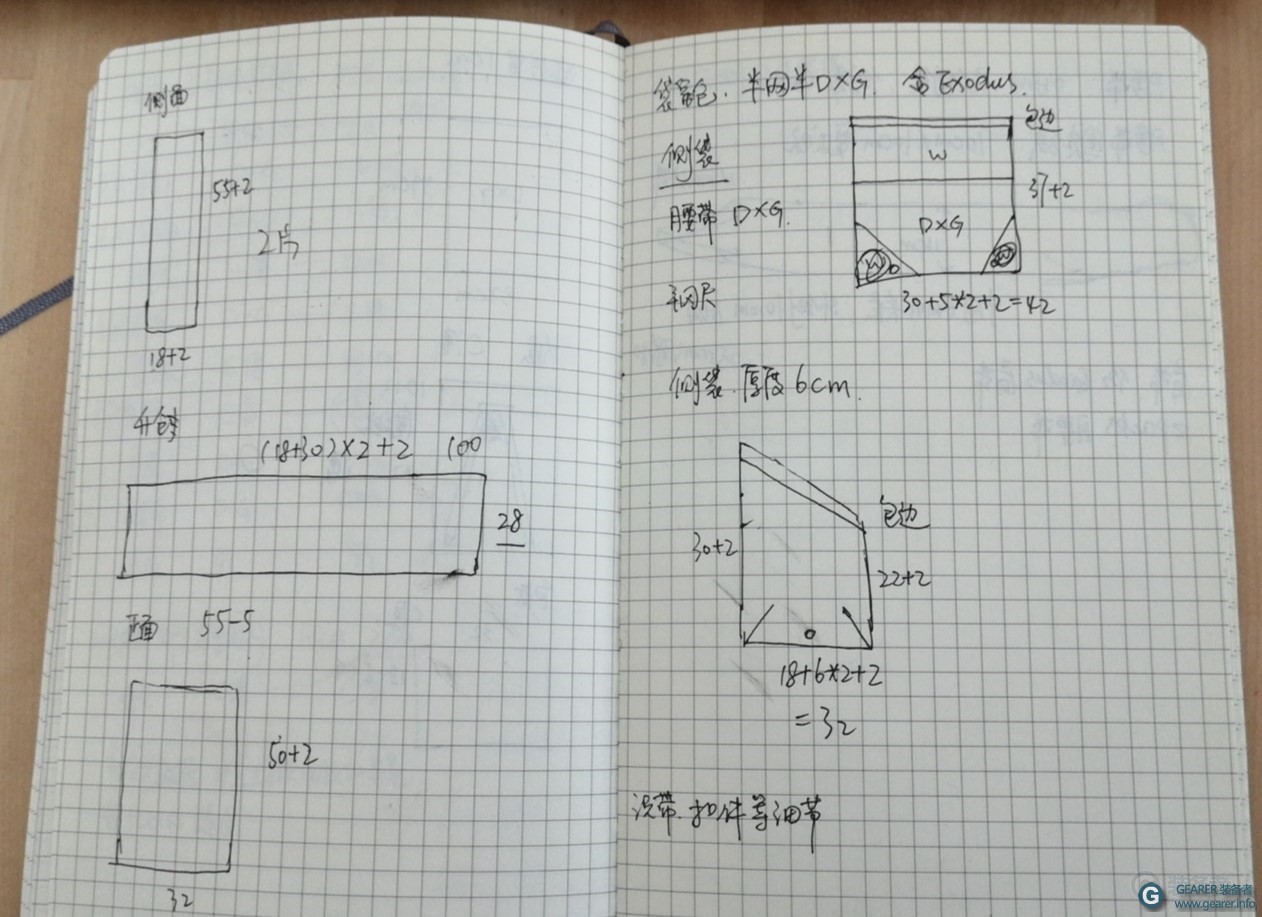 侧面
55+2
2片
18+2
升仓
(18+30)×2+2 100
28
正面 55-5
50+2
32
包. 半网半DXG. 含Exodus.
包边
侧袋
W
37+2
腰带 DXG.
DXG
W
W
30+5*2+2=42
侧袋.厚度6cm.
包边
30+2
22+2
18+6*2+2
=32
织带.扣件等细节
GEARER 装备者
www.gearer.info